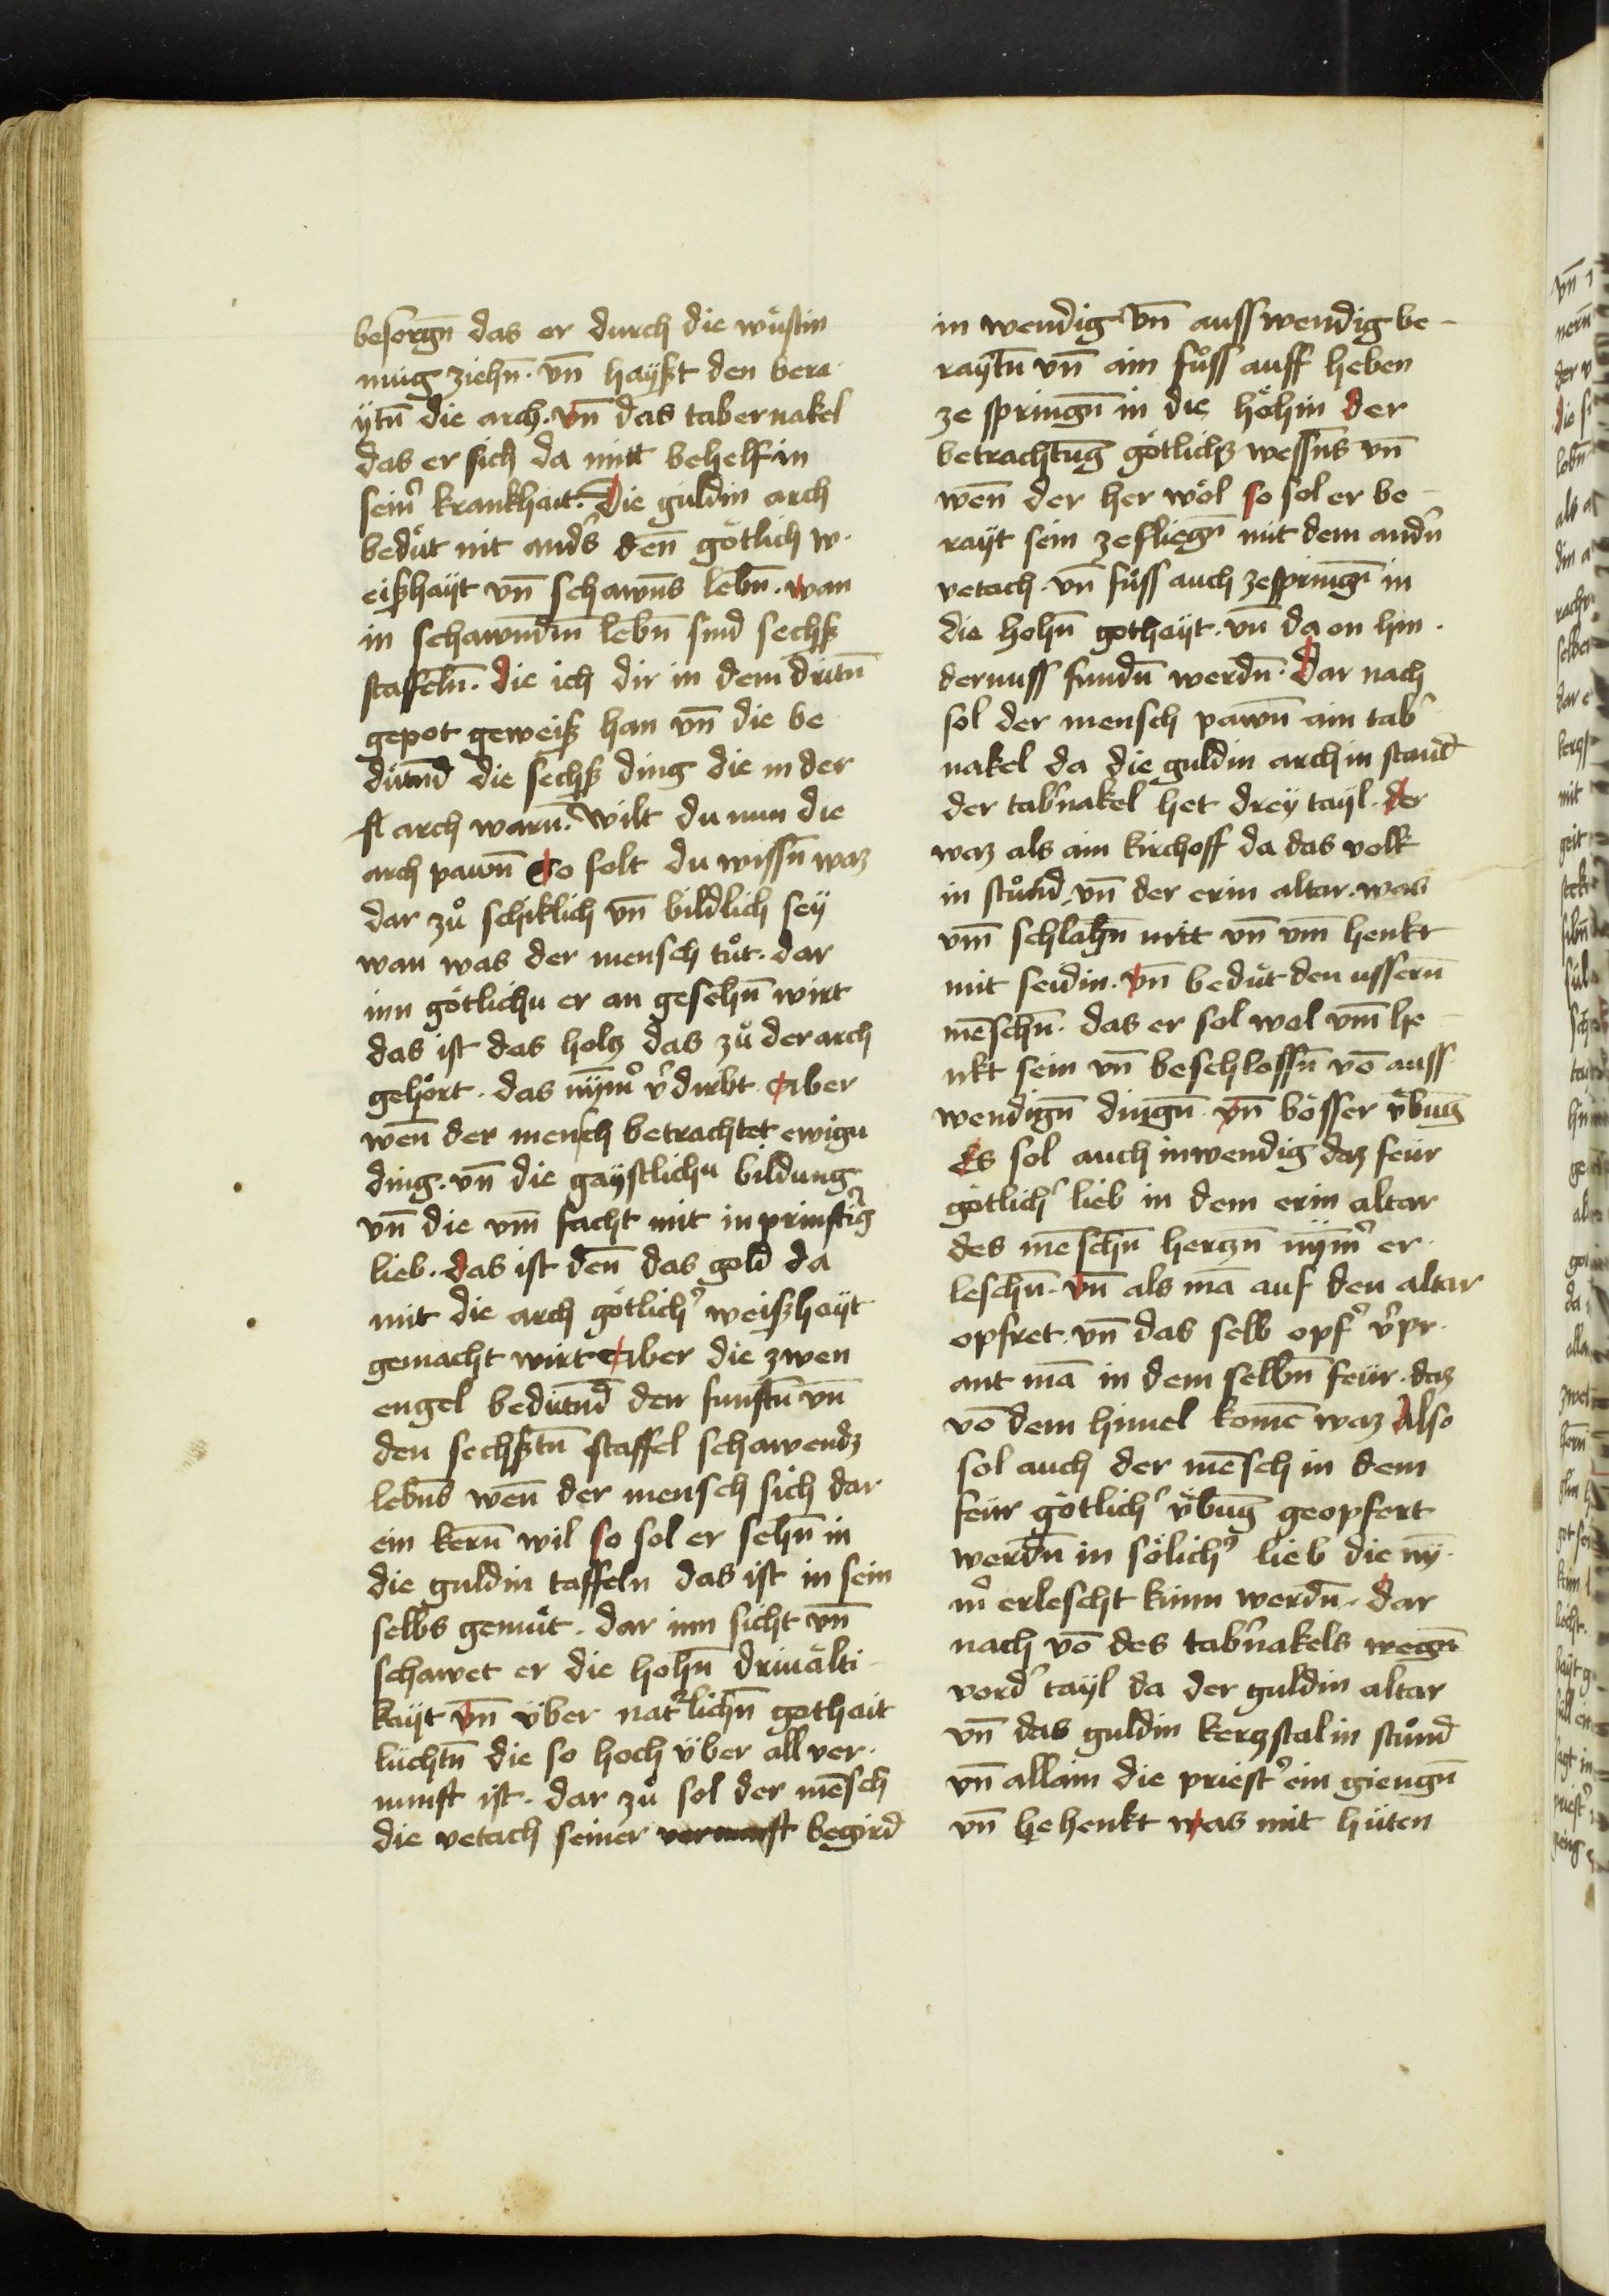 besorgn̄ das er durch die wuͤstin
mùg ziehn̄. vn̄ haÿßt den bera
ÿtn̄ die arch. vn̄ das tabernakel
das er sich da mitt behelf in
sein͛ krankhait. Die guldin arch
bedùt nit and͛s den̄ goͤtlich w.
eißhaÿt vn̄ schawn̄s lebn̄. wan
in schawn̄dm̄ lebn̄ sind sechß
staffeln̄. die ich dir in dem dritn̄
gepot geweiß han vn̄ die be
dùtn̄d die sechß ding die in der
arch warn̄. Wilt du nun die
arch pawn̄ So solt du wissn̄ waz
dar zuͦ schiklich vn̄ bildlich seÿ
wan was der mensch tuͦt. dar
inn goͤtlichu er an gesehn̄ wirt
das ist das holtz das zuͦ der arch
gehoͤrt. das nÿm̄͛ v͛dirbt. Aber
wen̄ der mensch betrachtet ewigu
ding. vn̄ die gaÿstlichu bildung
vn̄ die vm̄ facht mit inprinstig͛
lieb. das ist den̄ das gold da
mit die arch goͤtlich͛ weißhaÿt
gemacht wirt Aber die zwen
engel bedùtn̄d den funftn̄ vn̄
den sechßtn̄ staffel schawendz
lebn̄s wen̄ der mensch sich dar
ein kern̄ wil so sol er sehn̄ in
die guldin taffeln das ist in sein
selbs gemuͤt. dar inn sicht vn̄
schawet er die hohn̄ driualti
kaÿt vn̄ ùber nat͛lichn̄ gothait
lùchtn̄ die so hoch ùber all ver.
nunft ist. dar zuͦ sol der mēsch
die vetach seiner vernunft begird
in wendig vn̄ ausswendig be-
raÿtn̄ vn̄ ain fuͦss auff heben
ze springn̄ in die hoͤhin der
betrachtūg goͤtlichz wessn̄s vn̄
wen̄ der her woͤl so sol er be-
raÿt sein zefliegn̄ mit dem and͛n
vetach. vn̄ fuͤss auch zespringn̄ in
die hohn̄ gothaÿt. vn̄ da on hin.
dernuss fundn̄ werdn̄. Dar nach
sol der mensch pawn̄ ain tab͛
nakel da die guldin arch in stand
der tab͛nakel het dreÿ taÿl. der
waz als ain kirchoff da das volk
in stuͦnd, vn̄ der erin altar. was
vm̄ schlahn̄ mitt vn̄ vm̄ henkt
mit seidin. vn̄ bedùt den ussern̄
mēschn̄. das er sol wol vm̄ he-
nkt sein vn̄ beschlossn̄ vō auss
wendign̄ dingn̄. vn̄ boͤsser ùbūg
Es sol auch inwendig daz feùr
goͤtlich͛ lieb in dem erin altar
des mēschn̄ hertzn̄ nÿm̄͛ er.
leschn̄. vn̄ als mā auf den altar
opfret. vn̄ das selb opf͛ v͛pr.
ant mā in dem selbn̄ feùr. daz
vō dem himel komē waz Also
sol auch der mēsch in dem
feùr goͤtlich͛ ùbūg geopfert
werdn̄ in soͤlich͛ lieb die nÿ.
m͛ erlescht kùnn werdn̄. dar
nach vō des tab͛nakels wegn̄
vord͛ taÿl da der guldin altar
vn̄ das guldin kertzstal in stuͦnd
vn̄ allain die priest͛ ein giengn̄
vn̄ behenkt was mit hùten